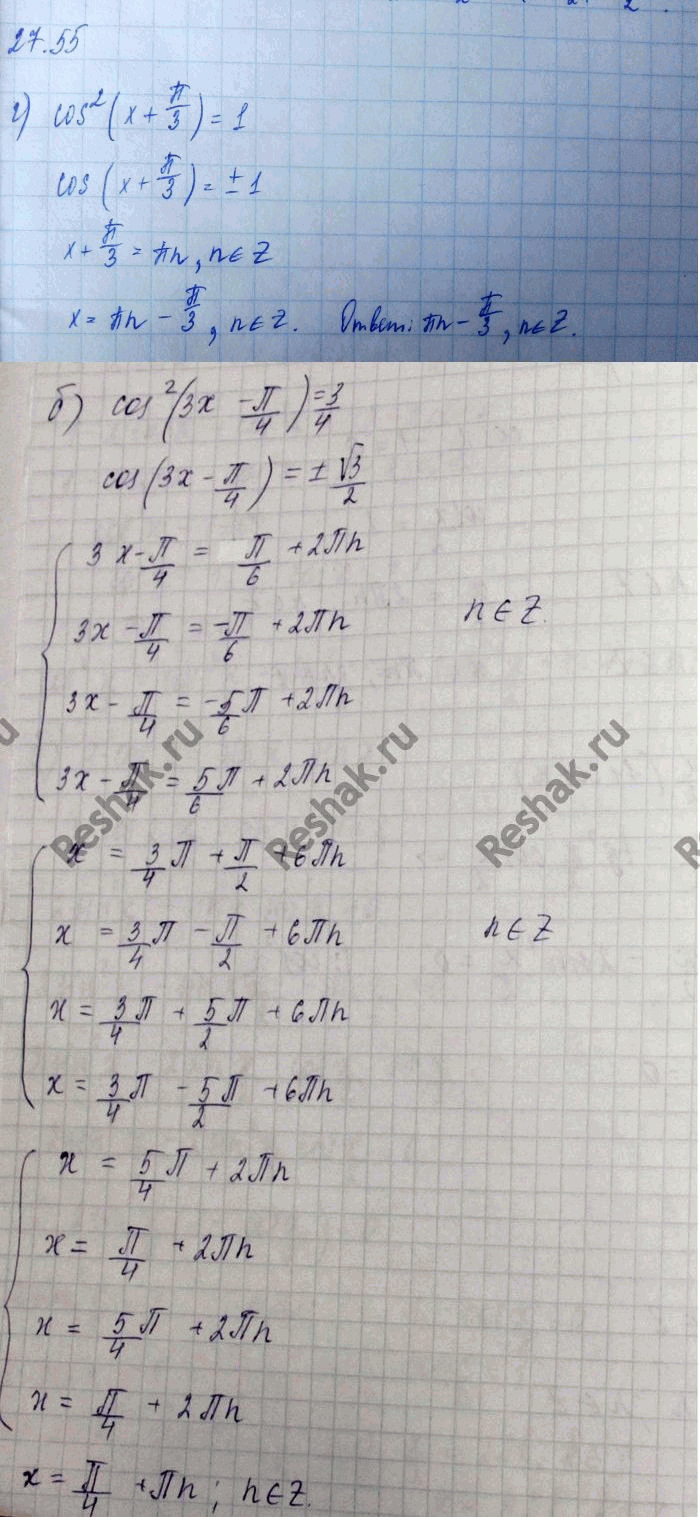 27.55
г) cos²(x + π/3) = 1
cos(x + π/3) = ± 1
x + π/3 = πn, n ∈ Z
x = πn − π/3, n ∈ Z. Ответ: πn − π/3, n ∈ Z.
б) cos²(3x − π/4) = 3/4
cos(3x − π/4) = ± √3/2
3x − π/4 = π/6 + 2πn
3x − π/4 = −π/6 + 2πn n ∈ Z.
3x − π/4 = −5/6 π + 2πn
3x − π/4 = 5/6 π + 2πn
Reshak.ru Reshak.ru Reshak.ru
x = 3/4 π + π/2 + 6πn
x = 3/4 π − π/2 + 6πn n ∈ Z
x = 3/4 π + 5/2 π + 6πn
x = 3/4 π − 5/2 π + 6πn
x = 5/4 π + 2πn
x = π/4 + 2πn
x = 5/4 π + 2πn
x = π/4 + 2πn
x = π/4 + πn; n ∈ Z.